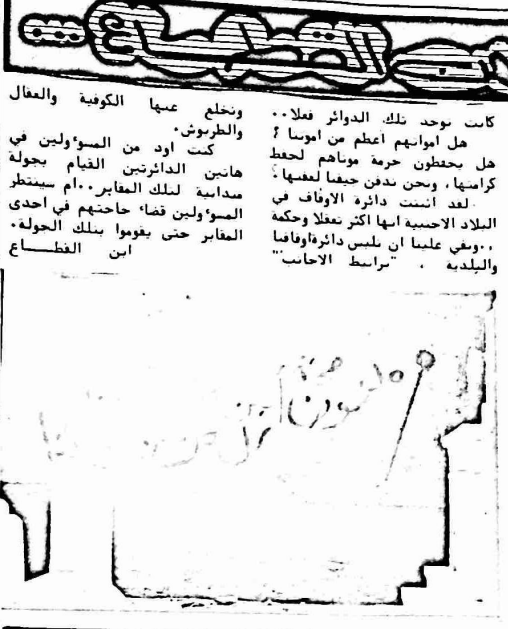 القطاع...
كانت توجد تلك الدوائر فعلا..
هل امواتهم اعظم من امواتنا ؟
هل يحفظون حرمة موتاهم لحفظ
كرامتها، ونحن ندفن جيفنا لعفنها؟
لقد اثبتت دائرة الاوقاف في
البلاد الاجنبية انها اكثر تعقلا وحكمة
..وبقي علينا ان نلبس دائرة اوقافنا
والبلدية . "برانيط الاجانب"
ونخلع عنها الكوفية والعقال
والطربوش.
كنت اود من المسوءولين في
هاتين الدائرتين القيام بجولة
ميدانية لتلك المقابر..ام سينتظر
المسوءولين قضاء حاجتهم في احدى
المقابر حتى يقوموا بتلك الجولة.
ابن القطاع